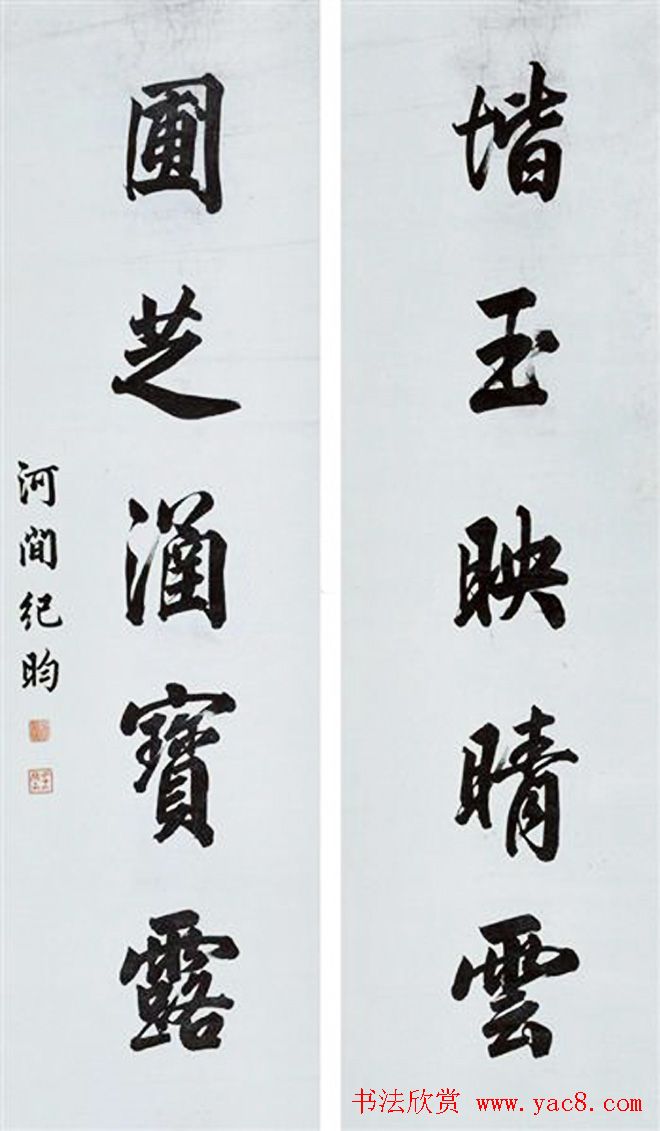 堦玉映晴雲
圃芝涵寶露
河間紀昀
书法欣赏 www.yac8.com